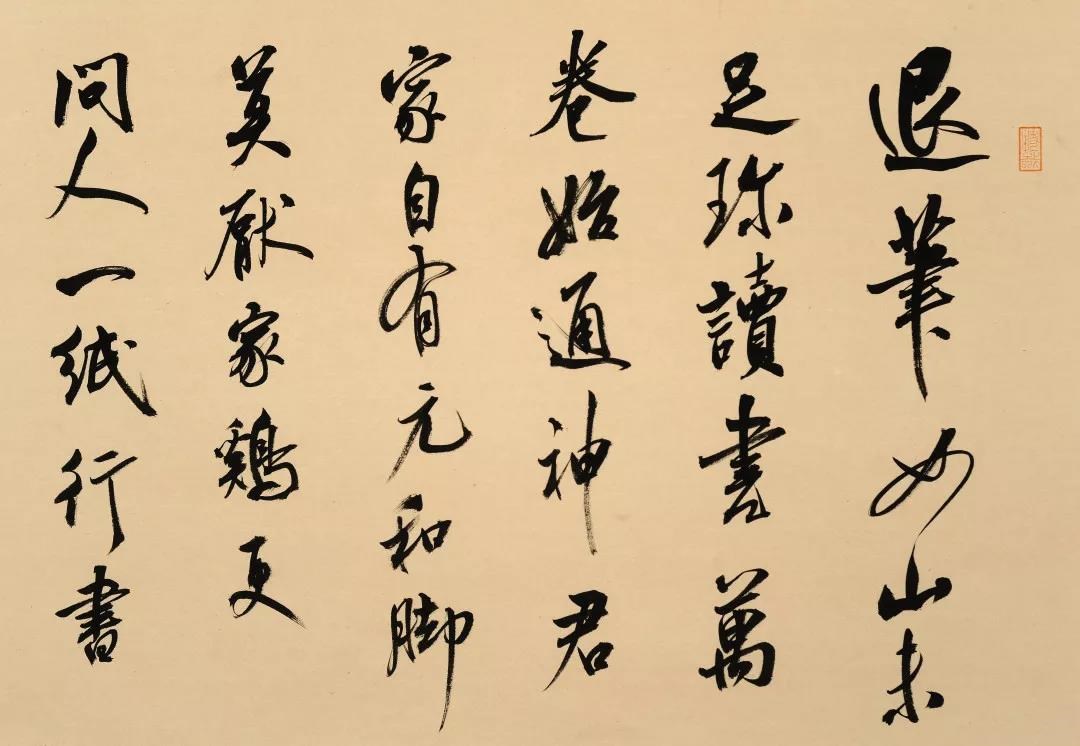 退筆如山未
足珍讀書萬
卷始通神君
家自有元和脚
莫厭家鷄更
問人一紙行書